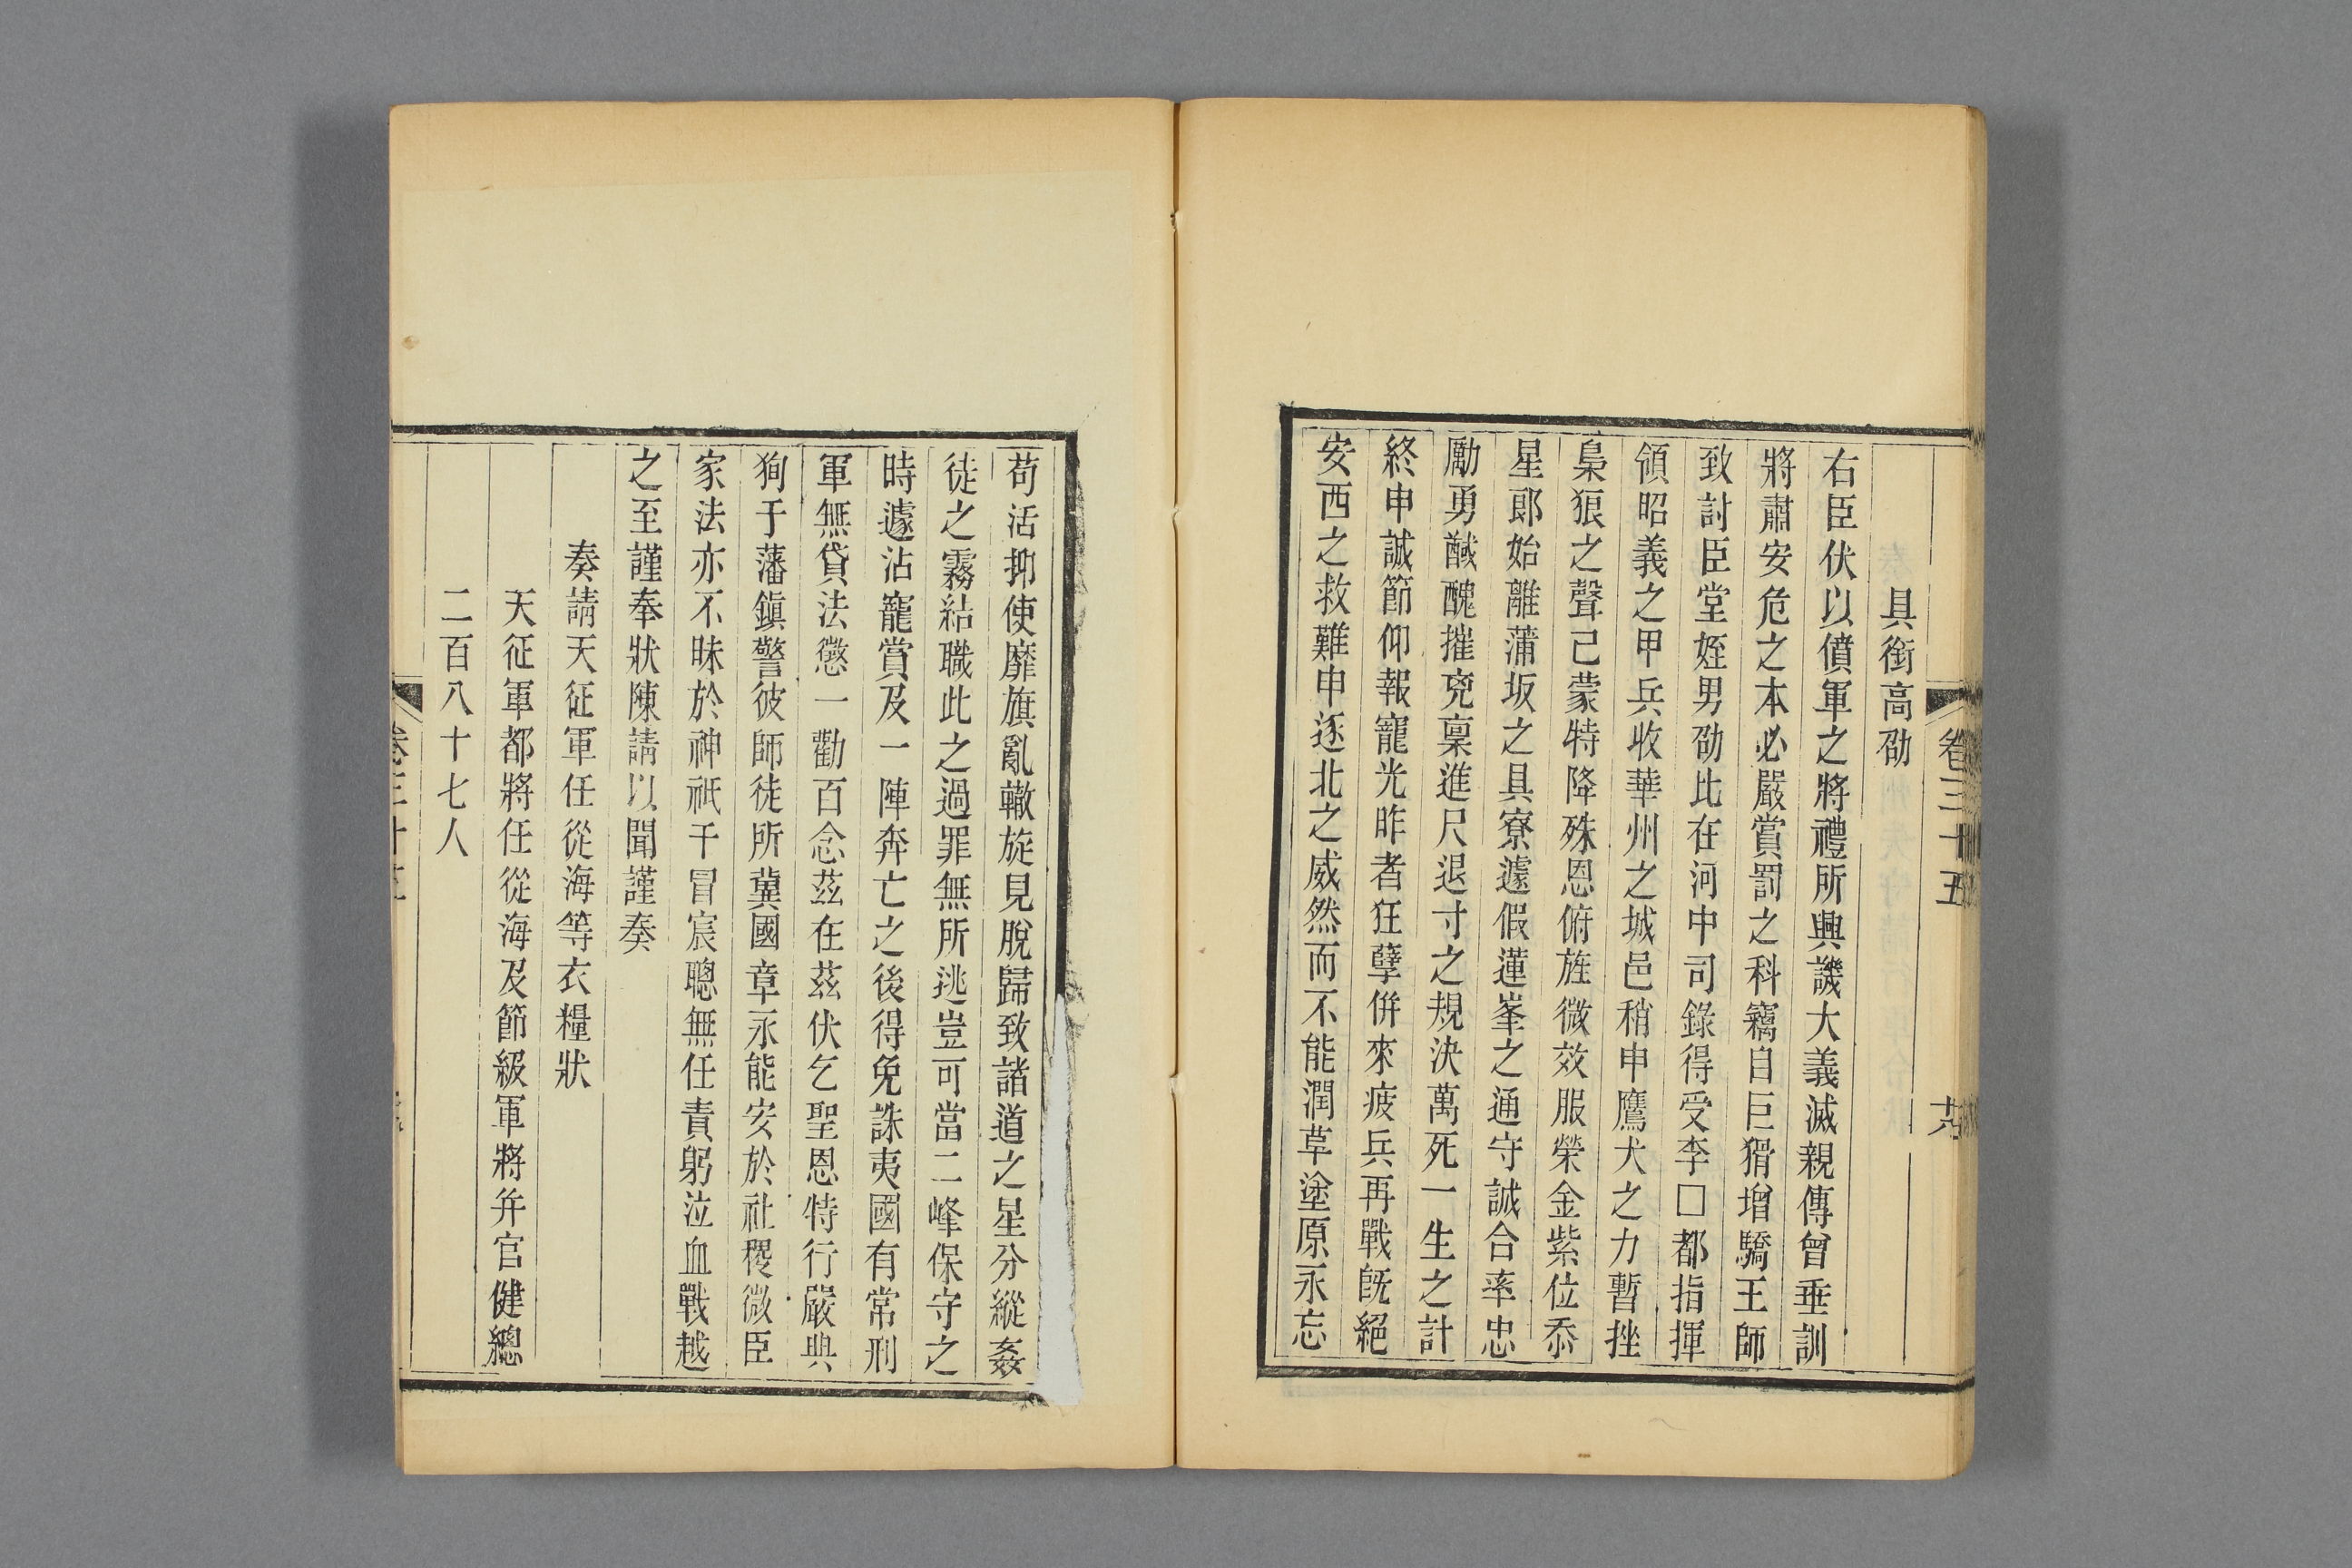 卷三十五
具銜高劭
右臣伏以僨軍之將禮所興譏大義滅親傳曾垂訓
將肅安危之本必嚴賞罰之科竊自巨猾增驕王師
致討臣堂姪男劭比在河中司錄得受李□都指揮
領昭義之甲兵收華州之城邑稍申鷹犬之力暫挫
梟狼之聲已蒙特降殊恩俯旌微效服榮金紫位忝
星郎始離蒲坂之具寮遽假蓮峯之通守誠合率忠
勵勇馘醜摧兇稟進尺退寸之規決萬死一生之計
終申誠節仰報寵光昨者狂孽倂來疲兵再戰旣絕
安西之救難申逐北之威然而不能潤草塗原永忘
苟活抑使靡旗亂轍旋見脫歸致諸道之星分縱姦
徒之霧結職此之過罪無所逃豈可當二峰保守之
時遽沾寵賞及一陣奔亡之後得免誅夷國有常刑
軍無貸法懲一勸百念茲在茲伏乞聖恩特行嚴典
狥于藩鎭警彼師徒所冀國章永能安於社稷微臣
家法亦不昧於神祇干冒宸聰無任責躬泣血戰越
之至謹奉狀陳請以聞謹奏
奏請天征軍任從海等衣糧狀
天征軍都將任從海及節級軍將幷官健總
二百八十七人
卷三十五